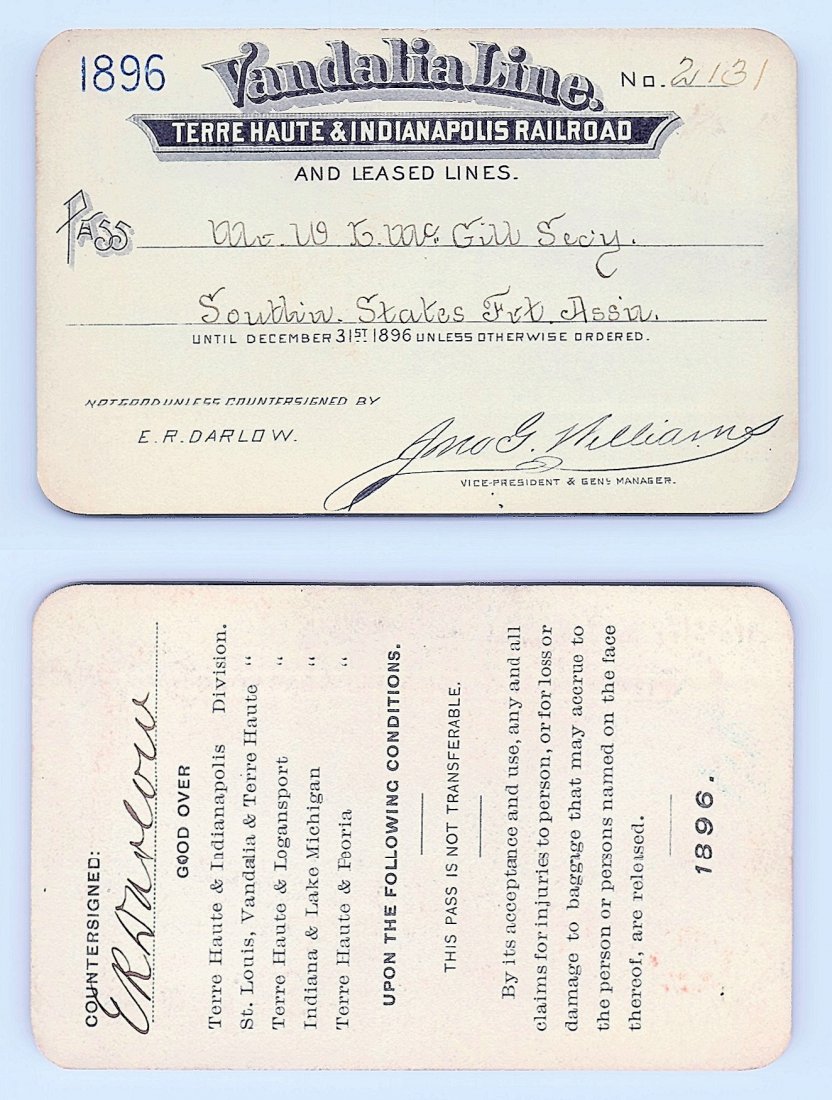 1896
Vandalia Line.
No. 2131
TERRE HAUTE & INDIANAPOLIS RAILROAD
AND LEASED LINES.
PASS Mr. W K. Mc. Gill Secy.
Southrn. States Frt. Assn.
UNTIL DECEMBER 31ST 1896 UNLESS OTHERWISE ORDERED.
NOT GOOD UNLESS COUNTERSIGNED BY
E.R. DARLOW.
Jno G. Williams
VICE-PRESIDENT & GENL MANAGER.
COUNTERSIGNED:
E R Darlow
GOOD OVER
Terre Haute & Indianapolis Division.
St. Louis, Vandalia & Terre Haute "
Terre Haute & Logansport "
Indiana & Lake Michigan "
Terre Haute & Peoria "
UPON THE FOLLOWING CONDITIONS.
THIS PASS IS NOT TRANSFERABLE.
By its acceptance and use, any and all
claims for injuries to person, or for loss or
damage to baggage that may accrue to
the person or persons named on the face
thereof, are released.
1896.